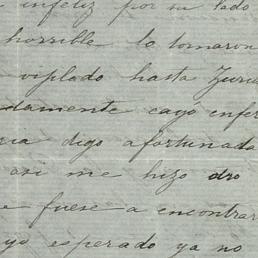 infeliz por su lado
horrible lo tomaron
viplado hasta Zuri
damente cayó enfer
ria digo afortunada
asi me hizo dro
e fuese a encontrar
yo esperado ya no